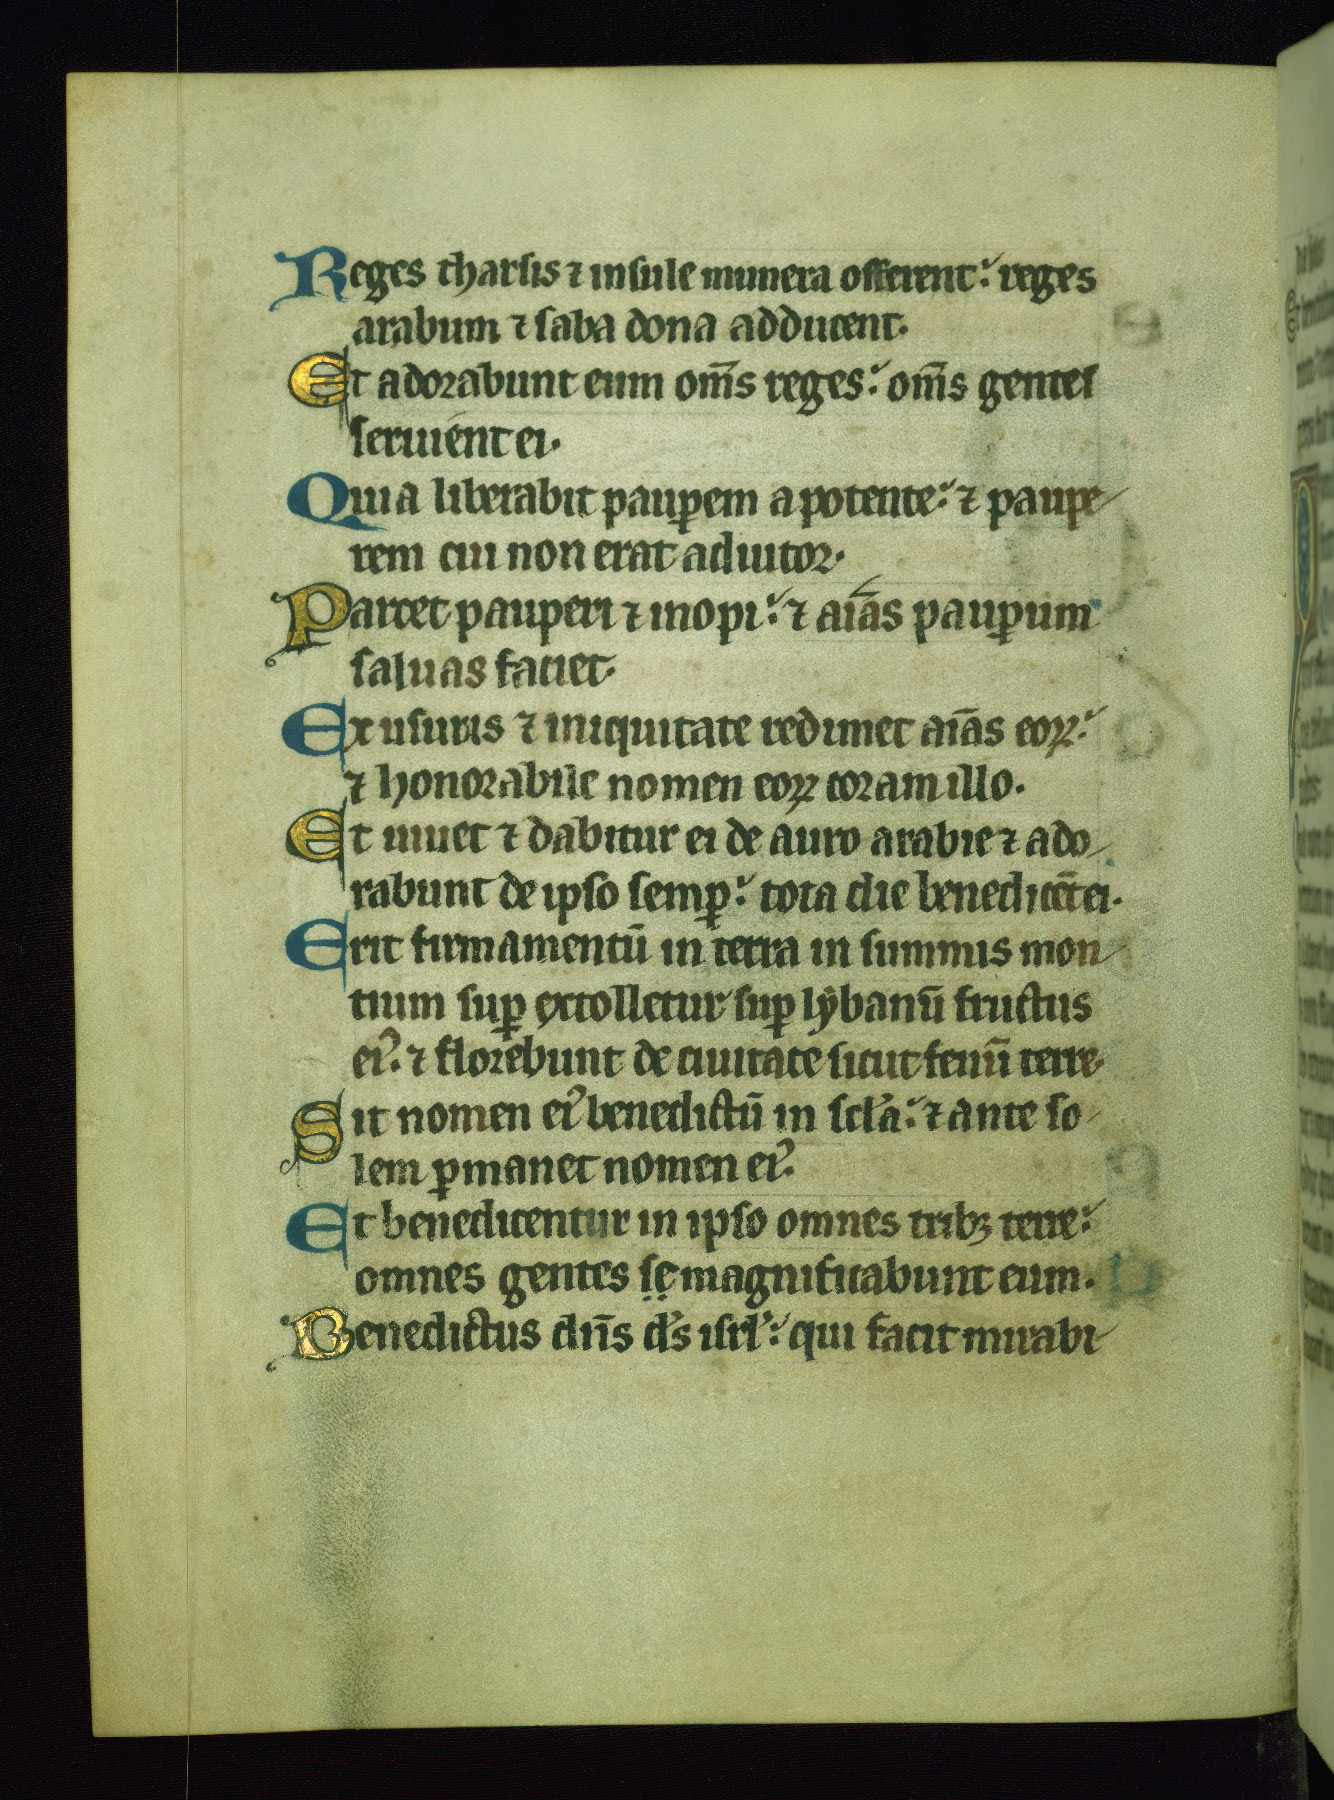 Reges tharsis ⁊ insule munera offerent: reges
arabum ⁊ saba dona adducent.
Et adorabunt eum om̄s reges: om̄s gentes
seruient ei.
Quia liberabit pauꝑem a potente: ⁊ paupe
rem cui non erat adiutor.
Parcet pauperi ⁊ inopi: ⁊ aīas pauꝑum
saluas faciet.
Ex usuris ⁊ iniquitate redimet aīas eoꝝ:
⁊ honorabile nomen eoꝝ coram illo.
Et uiuet ⁊ dabitur ei de auro arabie ⁊ ado
rabunt de ipso semꝑ: tota die benedicēt ei.
Erit firmamentū in terra in summis mon
tium suꝑ extolletur suꝑ lybanū fructus
eiꝰ. ⁊ florebunt de ciuitate sicut fenū terre.
Sit nomen eiꝰ benedictū in scl̓a: ⁊ ante so
lem ꝑmanet nomen eiꝰ.
Et benedicentur in ipso omnes tribꝫ terre:
omnes gentes se magnificabunt eum.
Benedictus dn̄s d̓s isrl̓: qui facit mirabi